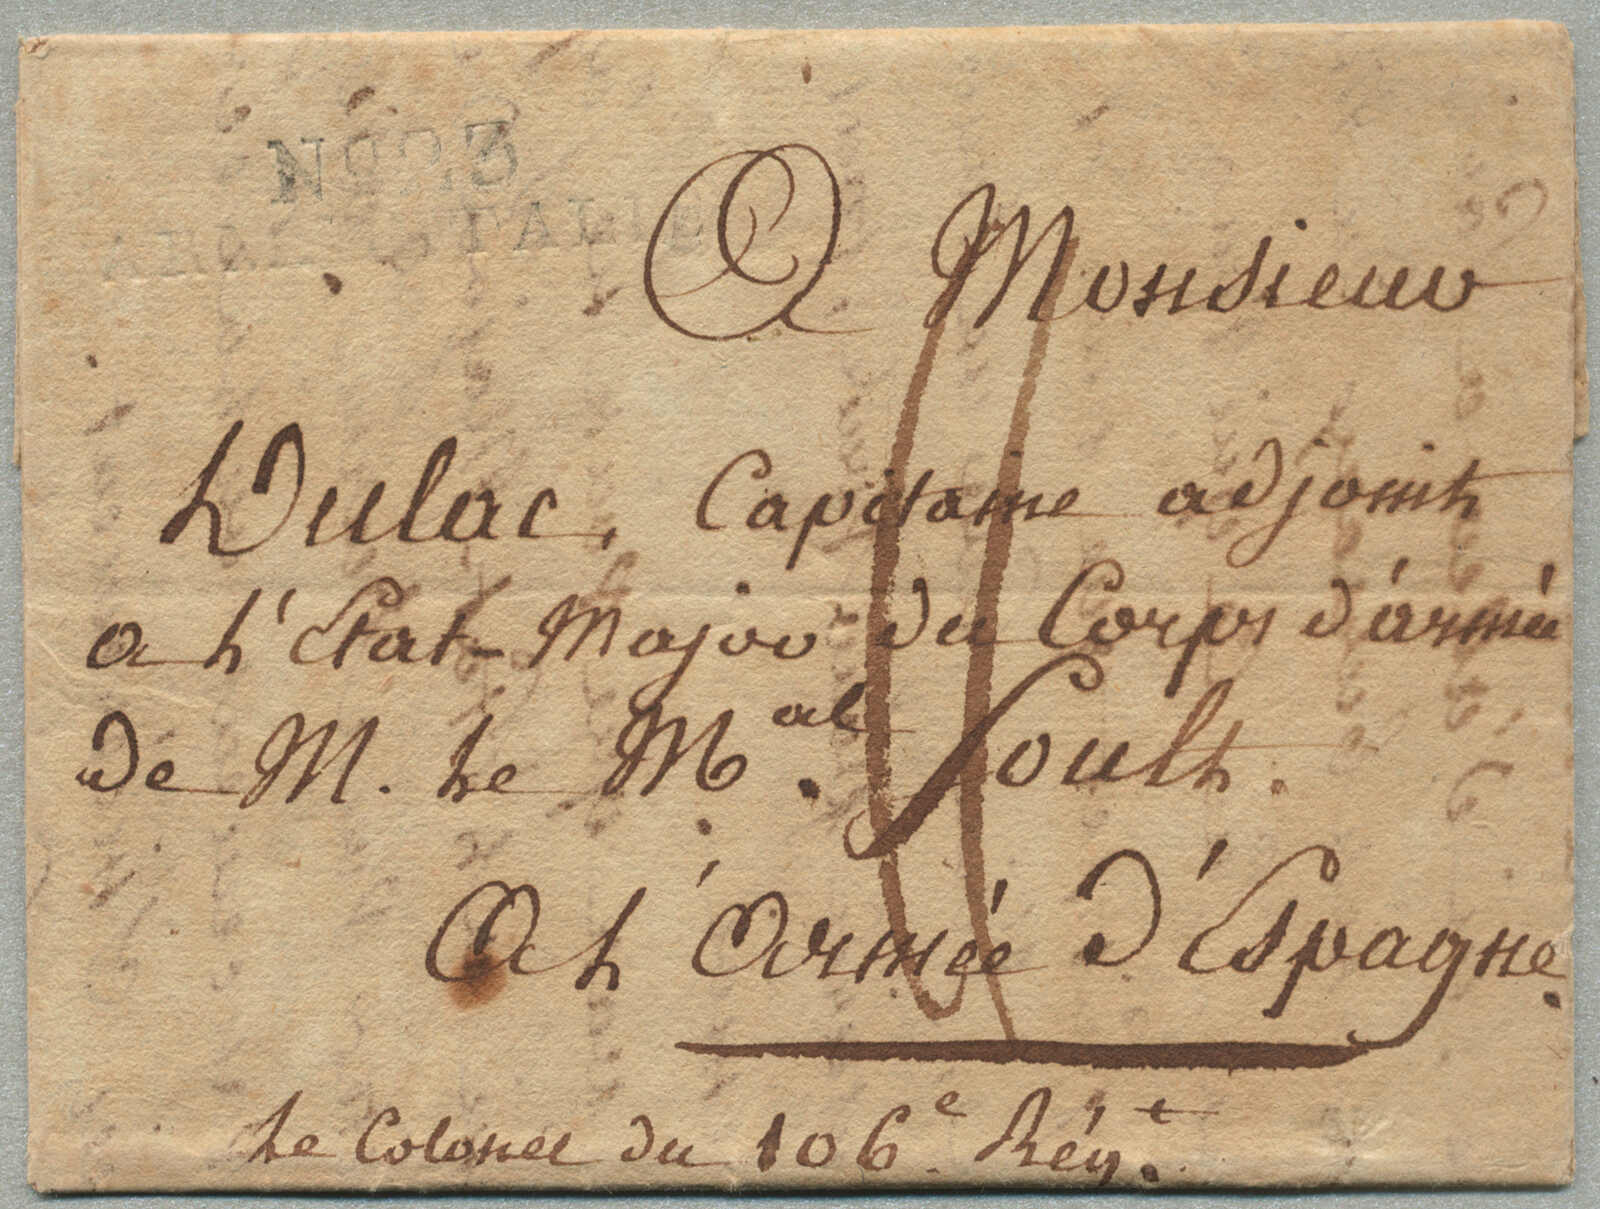 A Monsieur
Dulac, Capitaine adjoint
a L'État-Major du Corps d'armée
de M. Le Mal. Soult.
A L'Armée d'Espagne.
Le Colonel du 106e. Régt.